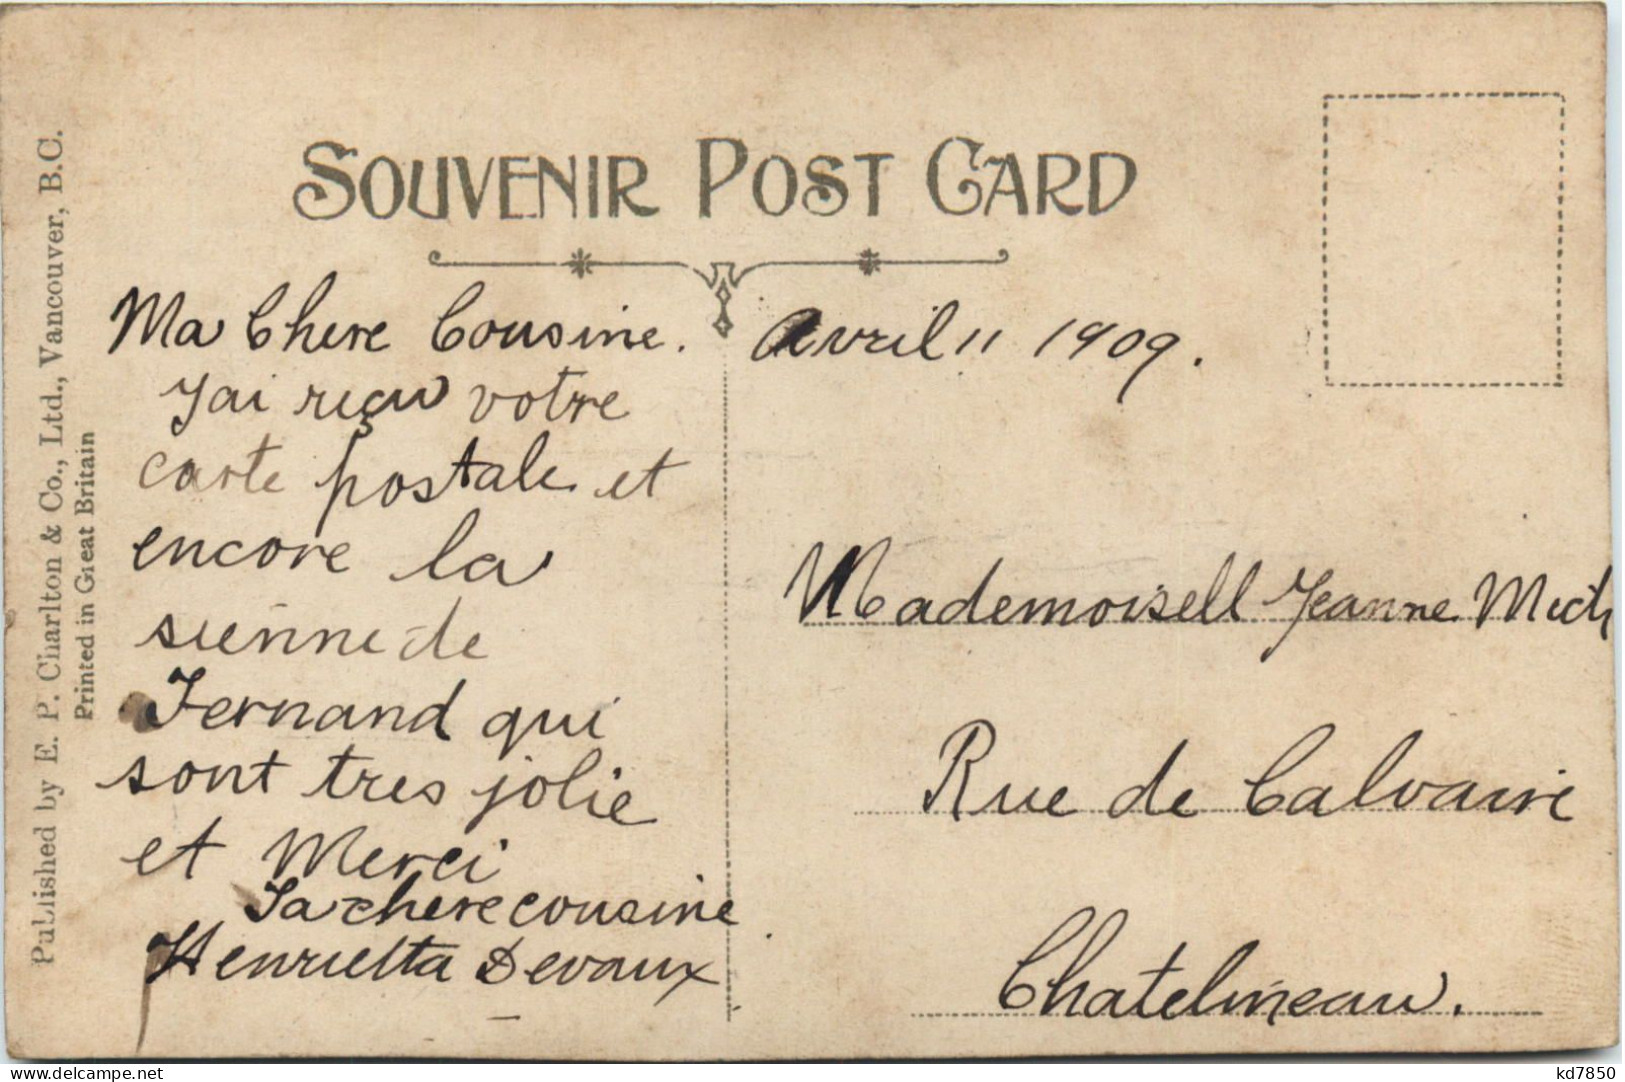 SOUVENIR POST CARD
Published by E. P. Charlton & Co., Ltd., Vancouver, B.C.
Printed in Great Britain
Ma Chere Cousine.
J'ai reçu votre
carte postale et
encore la
sienne de
Fernand qui
sont tres jolie
et Merci
Ta chere cousine
Henrietta Devaux
Avril 11 1909.
Mademoisell Jeanne Mich
Rue de Calvaire
Chatelineau.
www.delcampe.net
kd7850